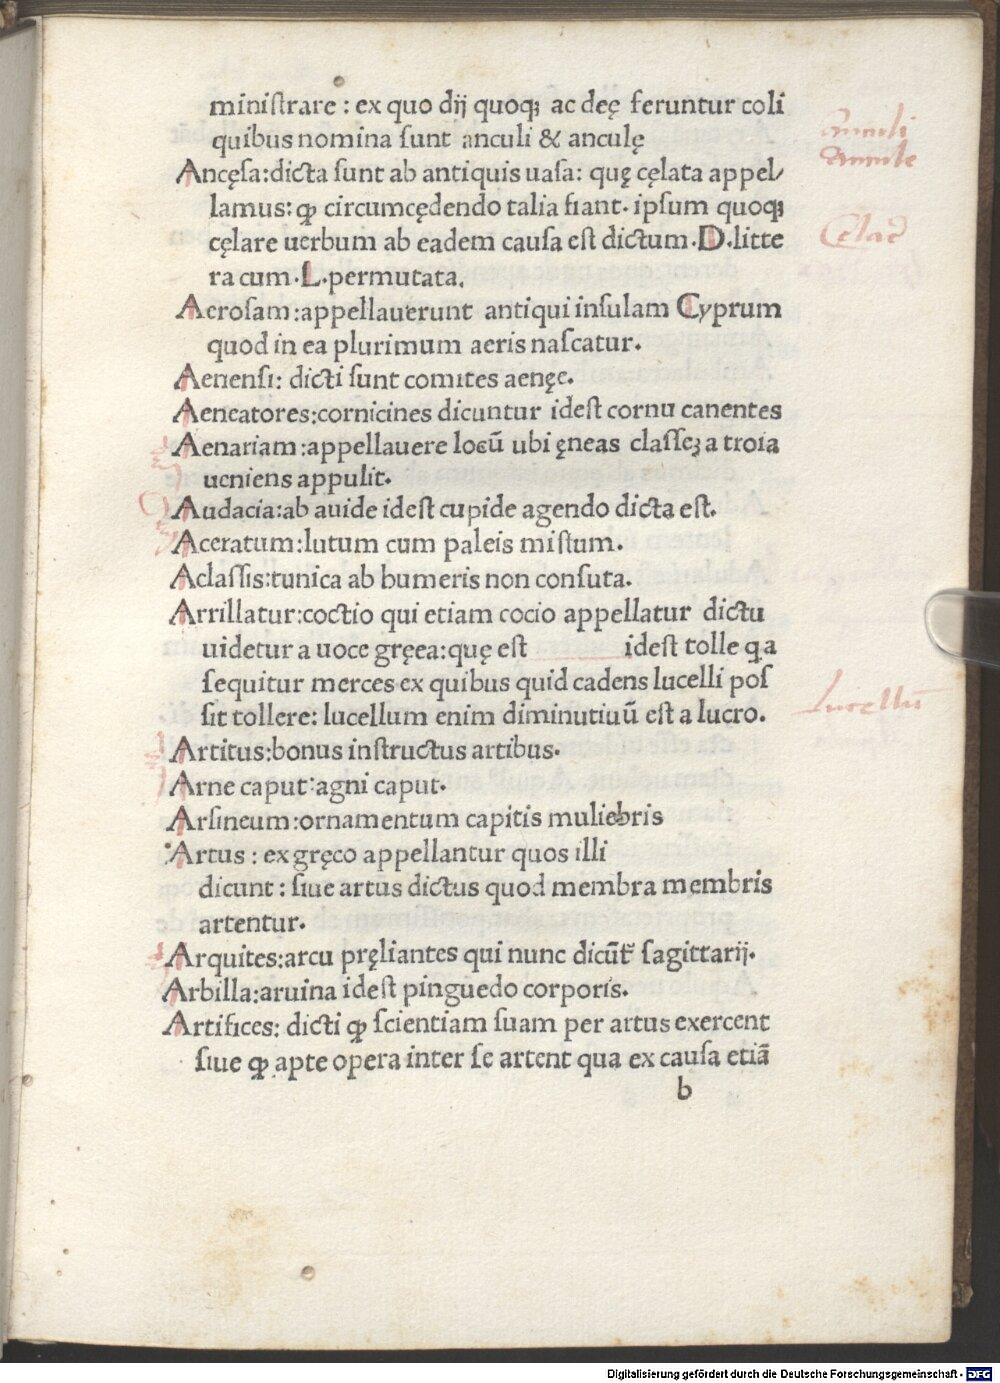 miniſtrare : ex quo dij quoqꝫ ac deę feruntur coli
quibus nomina ſunt anculi & anculę
Ancęſa:dicta ſunt ab antiquis uaſa: quę cęlata appel/
lamus: ꝙ circumcędendo talia fiant. ipſum quoqꝫ
cęlare uerbum ab eadem cauſa eſt dictum.D.litte
ra cum.L.permutata.
Aeroſam:appellauerunt antiqui inſulam Cyprum
quod in ea plurimum aeris naſcatur.
Aenenſi: dicti ſunt comites aenęe.
Aeneatores:cornicines dicuntur ideſt cornu canentes
Aenariam:appellauere locū ubi ęneas claſſeꝫ a troia
ueniens appulit.
Audacia:ab auide ideſt cupide agendo dicta eſt.
Aceratum:lutum cum paleis miſtum.
Aclaſſis:tunica ab humeris non conſuta.
Arrillatur:coctio qui etiam cocio appellatur dictu
uidetur a uoce gręea:quę eſt ideſt tolle q a
ſequitur merces ex quibus quid cadens lucelli poſ
ſit tollere: lucellum enim diminutiuū eſt a lucro.
Artitus:bonus inſtructus artibus.
Arne caput:agni caput.
Arſineum:ornamentum capitis muliebris
Artus : ex gręco appellantur quos illi
dicunt : ſiue artus dictus quod membra membris
artentur.
Arquites:arcu pręliantes qui nunc dicūt̄ ſagittarij.
Arbilla:aruina ideſt pinguedo corporis.
Artifices: dicti ꝙ ſcientiam ſuam per artus exercent
ſiue ꝙ apte opera inter ſe artent qua ex cauſa etiā
b
Anculi
Ancule
Lucellū
Digitalisierung gefördert durch die Deutsche Forschungsgemeinschaft - DFG